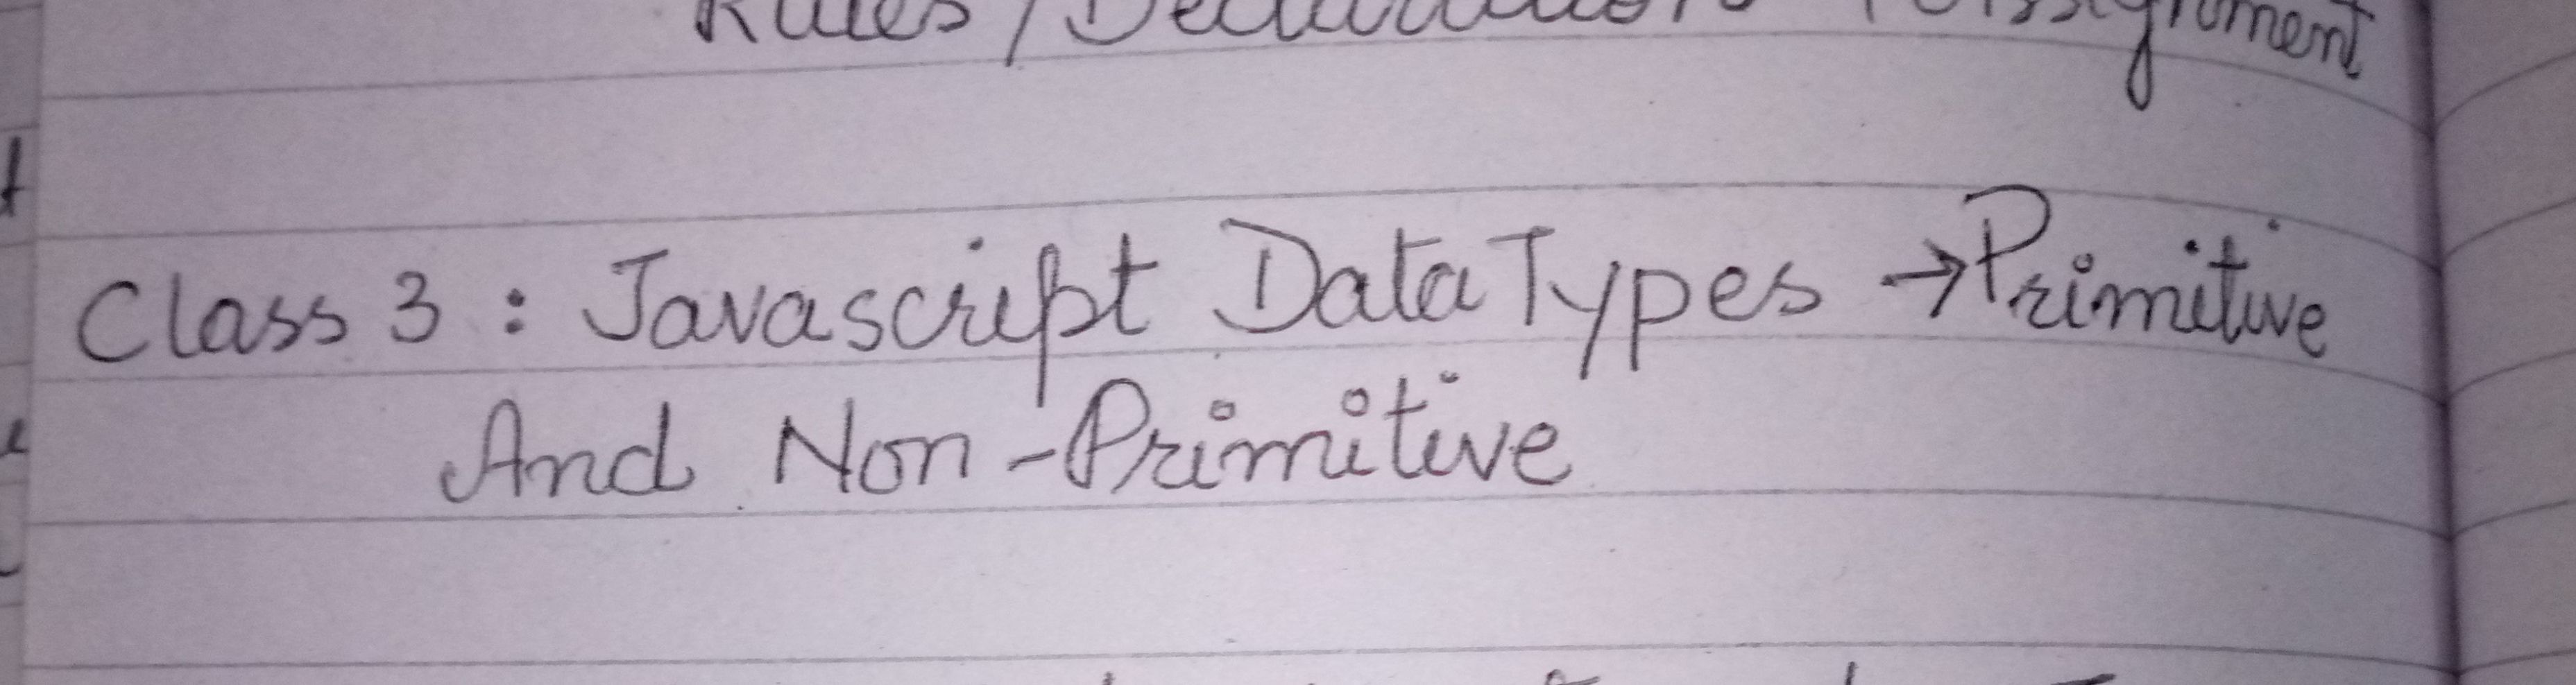 Rules / Declaration Assignment
Class 3 : Javascript Data Types → Primitive
And Non-Primitive